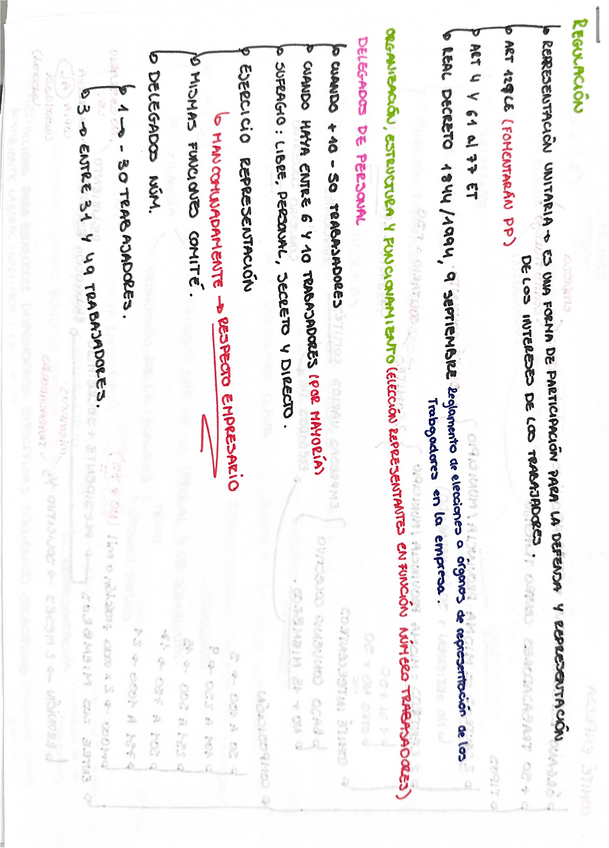 REGULACIÓN
REPRESENTACIÓN UNITARIA → ES UNA FORMA DE PARTICIPACIÓN PARA LA DEFENSA Y REPRESENTACIÓN
DE LOS INTERESES DE LOS TRABAJADORES.
ART 129 CE (FOMENTARÁN PP)
ART 4 Y 61 al 77 ET
REAL DECRETO 1844/1994, 9 SEPTIEMBRE Reglamento de elecciones a órganos de representación de los
Trabajadores en la empresa.
ORGANIZACIÓN, ESTRUCTURA Y FUNCIONAMIENTO (ELECCIÓN REPRESENTANTES EN FUNCIÓN NÚMERO TRABAJADORES)
DELEGADOS DE PERSONAL
CUANDO + 10 - 50 TRABAJADORES
CUANDO HAYA ENTRE 6 Y 10 TRABAJADORES (POR MAYORÍA)
SUFRAGIO: LIBRE, PERSONAL, SECRETO Y DIRECTO.
EJERCICIO REPRESENTACIÓN
MANCOMUNADAMENTE → RESPECTO EMPRESARIO
MISMAS FUNCIONES COMITÉ.
DELEGADOS NÚM.
1 → - 30 TRABAJADORES.
3 → ENTRE 31 Y 49 TRABAJADORES.